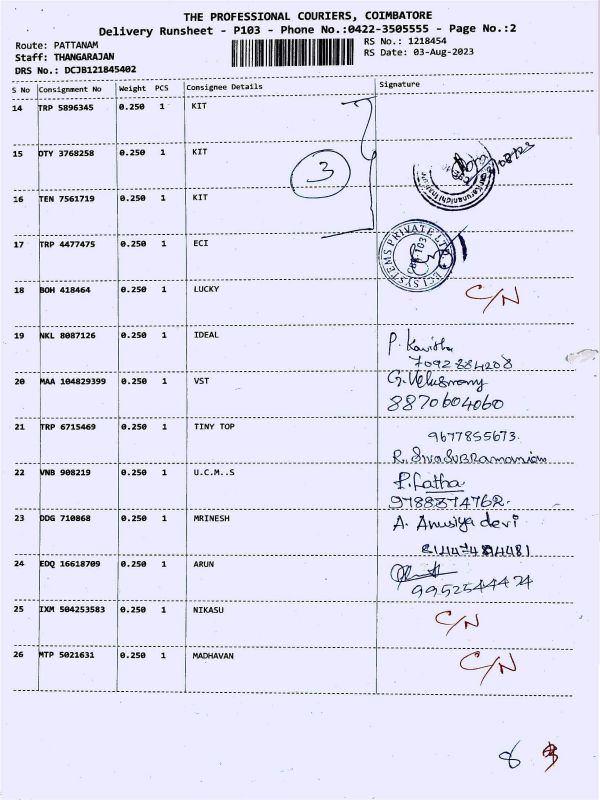 THE PROFESSIONAL COURIERS, COIMBATORE
Delivery Runsheet - P103 - Phone No.:0422-3505555 - Page No.:2
Route: PATTANAM
RS No.: 1218454
Staff: THANGARAJAN
RS Date: 03-Aug-2023
DRS No.: DCJB121845402
S No Consignment No Weight PCS Consignee Details Signature
14 TRP 5896345 0.250 1 KIT
15 OTY 3768258 0.250 1 KIT
3
16 TEN 7561719 0.250 1 KIT
17 TRP 4477475 0.250 1 ECI
ECI SYSTEMS PRIVATE LTD
18 BOH 418464 0.250 1 LUCKY C/N
19 NKL 8087126 0.250 1 IDEAL P. Kavitha
7092884208
20 MAA 104829399 0.250 1 VST G. Velusmamy
8870604060
21 TRP 6715469 0.250 1 TINY TOP 9677855673.
R. SivaSUBRamanian
22 VNB 908219 0.250 1 U.C.M..S P. Latha
9788874762.
23 DDG 710868 0.250 1 MRINESH A. Anusiya devi
24 EDQ 16618709 0.250 1 ARUN
9952544424
25 IXM 504253583 0.250 1 NIKASU C/N
26 MTP 5021631 0.250 1 MADHAVAN C/N
8